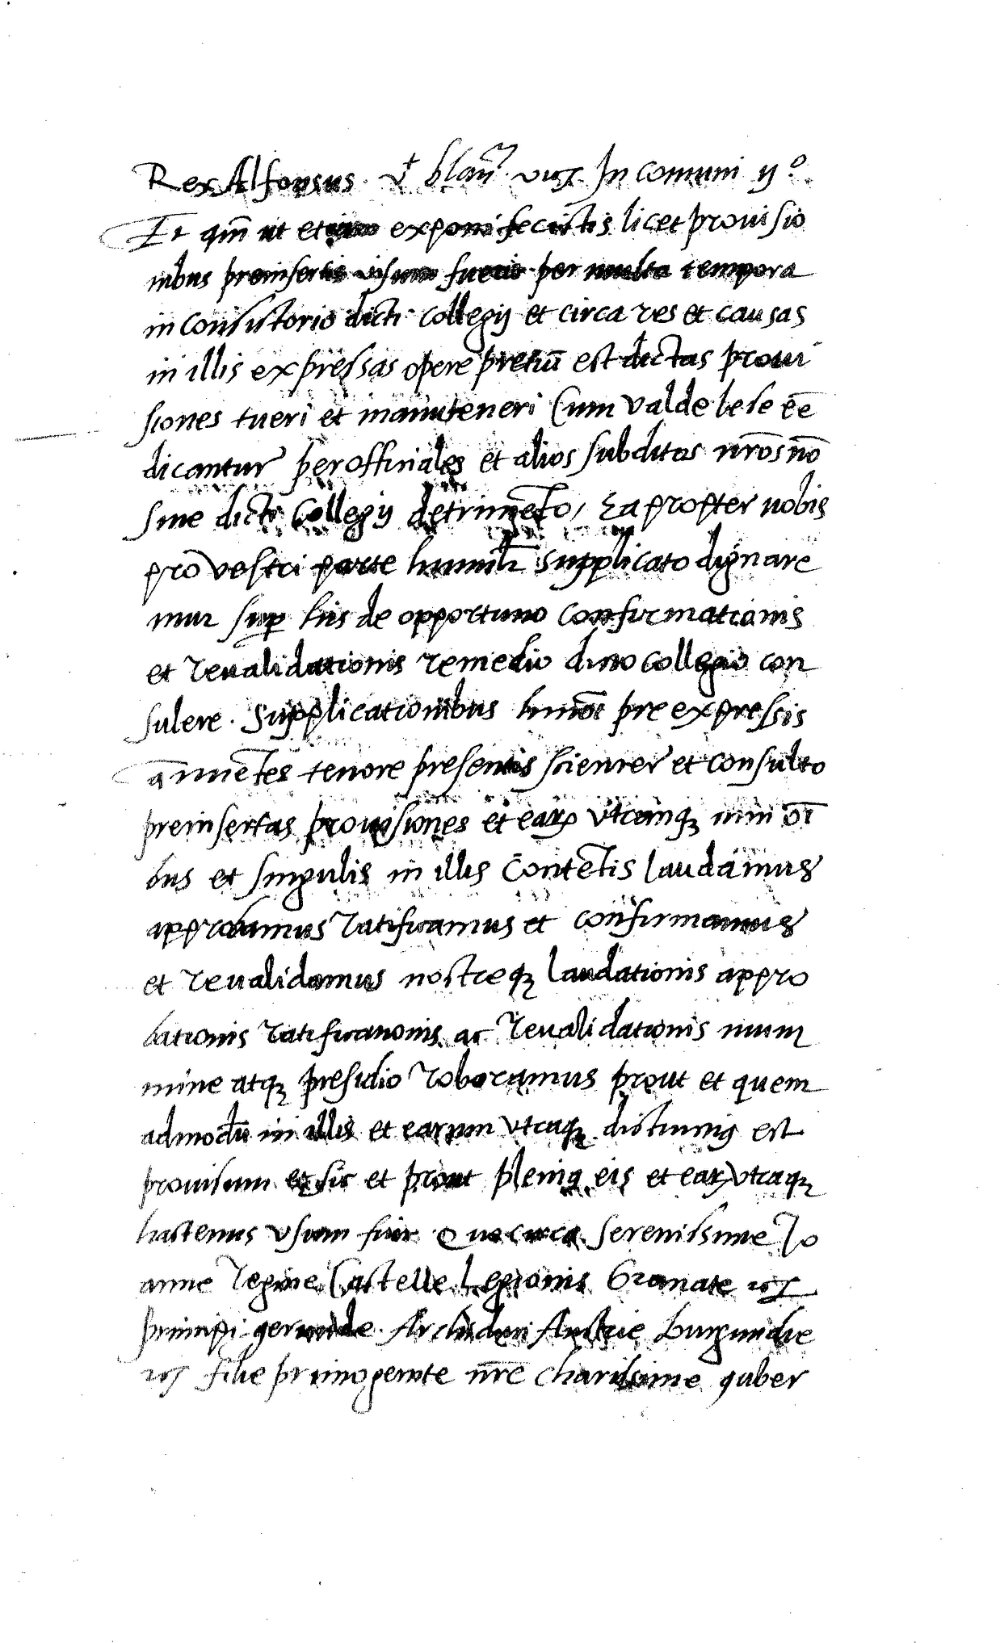 Rex Alfonsus. Vt blañ vicz In comuni ij º
Et qm̄ ut etiam exponi fecistis licet prouisio
nibus preinsertis usum fuerit per multa tempora
in Consistorio dicti Collegij et circa res et causas
in illis expressas opere pretiū est dictas proui
siones tueri et manuteneri Cum valde lese eē
dicantur per officiales et alios subditos nr̄os nō
sine dicti Collegij detrimēto, Ea propter nobis
prō vestri parte humilr̄ supplicato dignare
mur sup his de opportuno confirmationis
et reualidationis remedio dicto collegio con
sulere. Supplicationibus hmōi pre expressis
ānuētes tenore presentis scienter et consulto
preinsertas prouisiones et earꝝ vtramqꝫ nim oī
bus et singulis in illis Contētis laudamus
approbamus ratificamus et confirmamus
et reualidamus nostreqꝫ laudationis appro
bationis ratificationis ac reualidationis mum
mine atqꝫ presidio roboramus prout et quem
admodū in illis et earum vtraqꝫ distinctius est
prouisum et sic et prout plenius eis et earꝝ vtraqꝫ
hactenus vsum fuit Quocirca Serenissime Jo
anne Regine Castelle Legionis Granate ꝛcͣ
principi gerunde Archiduci Austrie Burgundie
ꝛcͣ filie primogenite nr̄e charissime guber